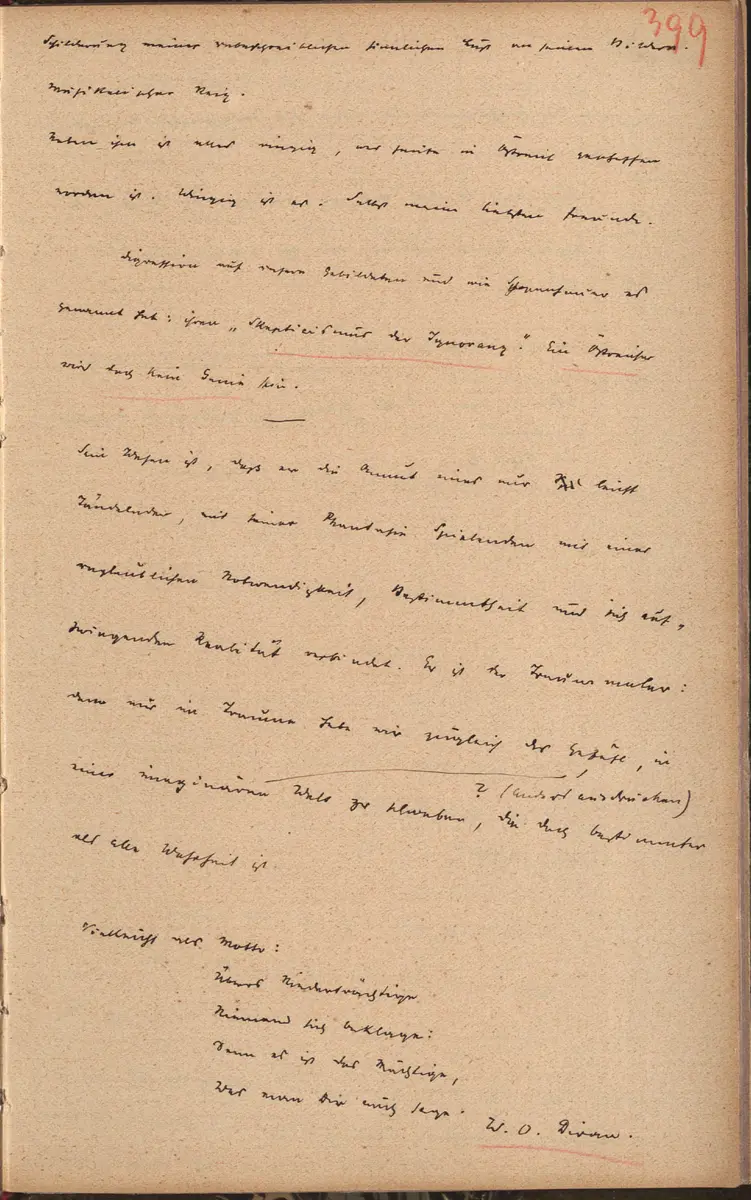 399
Schilderung meiner unbeschreiblichen sinnlichen Lust an seinen Bildern.
Musikalischer Reiz.
Neben ihm ist alles winzig, was heute in Östreich geschaffen
worden ist. Winzig ist es. Selbst meine liebsten Freunde.
Digression auf unsere Gebildeten und wie Schopenhauer es
genannt hat: ihren „Skepticismus der Ignoranz“. Ein Östreicher
wird doch kein Genie sein.
Sein Wesen ist, daß er die Anmut eines nur leicht
Tändelnden, mit seiner Phantasie Spielenden mit einer
unglaublichen Notwendigkeit, Bestimmtheit und sich auf-
zwingenden Realität verbindet. Er ist der Traummaler:
denn nur im Traume habe wir zugleich das Gefühl, in
einer imaginären Welt zu schweben, die doch bestimmter
? (anders ausdrücken)
als alle Wahrheit ist
Vielleicht als Motto:
Übers Niederträchtige
Niemand sich beklage:
Denn es ist das Mächtige,
Was man Dir auch sage.
W. O. Divan.